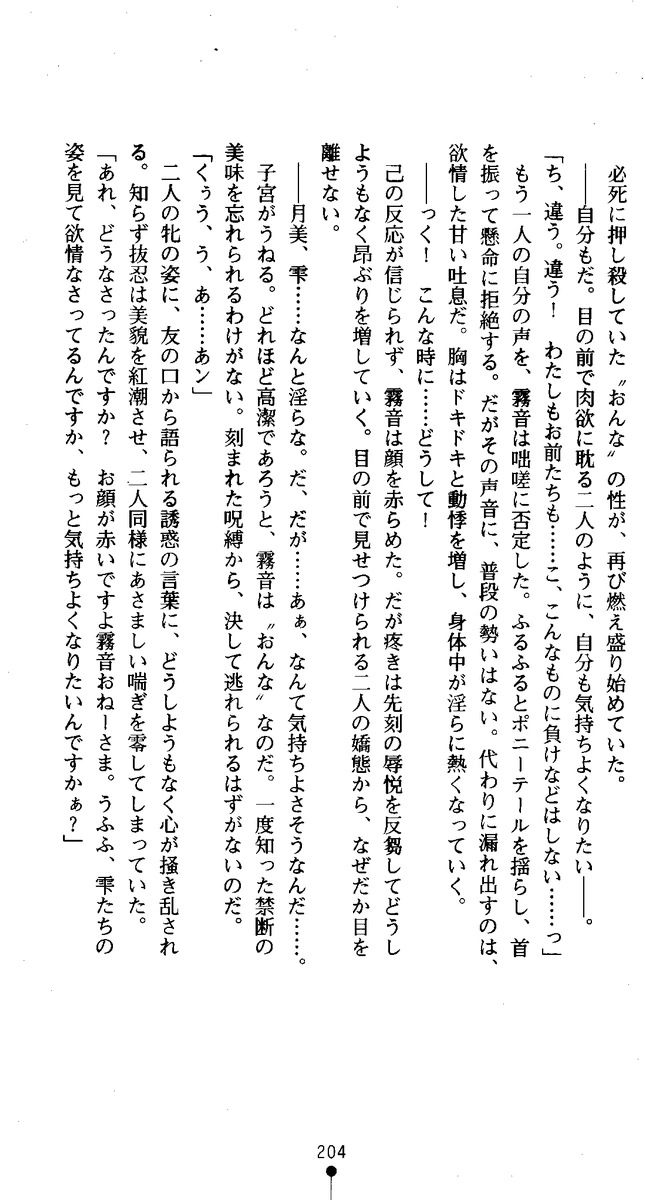 必死に押し殺していた〝おんな〟の性が、再び燃え盛り始めていた。
――自分もだ。目の前で肉欲に耽る二人のように、自分も気持ちよくなりたい――。
「ち、違う。違う！　わたしもお前たちも……こ、こんなものに負けなどはしない……っ」
もう一人の自分の声を、霧音は咄嗟に否定した。ふるふるとポニーテールを揺らし、首
を振って懸命に拒絶する。だがその声音に、普段の勢いはない。代わりに漏れ出すのは、
欲情した甘い吐息だ。胸はドキドキと動悸を増し、身体中が淫らに熱くなっていく。
――っく！　こんな時に……どうして！
己の反応が信じられず、霧音は顔を赤らめた。だが疼きは先刻の辱悦を反芻してどうし
ようもなく昂ぶりを増していく。目の前で見せつけられる二人の嬌態から、なぜだか目を
離せない。
――月美、雫……なんと淫らな。だ、だが……あぁ、なんて気持ちよさそうなんだ……。
子宮がうねる。どれほど高潔であろうと、霧音は〝おんな〟なのだ。一度知った禁断の
美味を忘れられるわけがない。刻まれた呪縛から、決して逃れられるはずがないのだ。
「くぅう、う、あ……あン」
二人の牝の姿に、友の口から語られる誘惑の言葉に、どうしようもなく心が掻き乱され
る。知らず抜忍は美貌を紅潮させ、二人同様にあさましい喘ぎを零してしまっていた。
「あれ、どうなさったんですか？　お顔が赤いですよ霧音おねーさま。うふふ、雫たちの
姿を見て欲情なさってるんですか、もっと気持ちよくなりたいんですかぁ？」
204